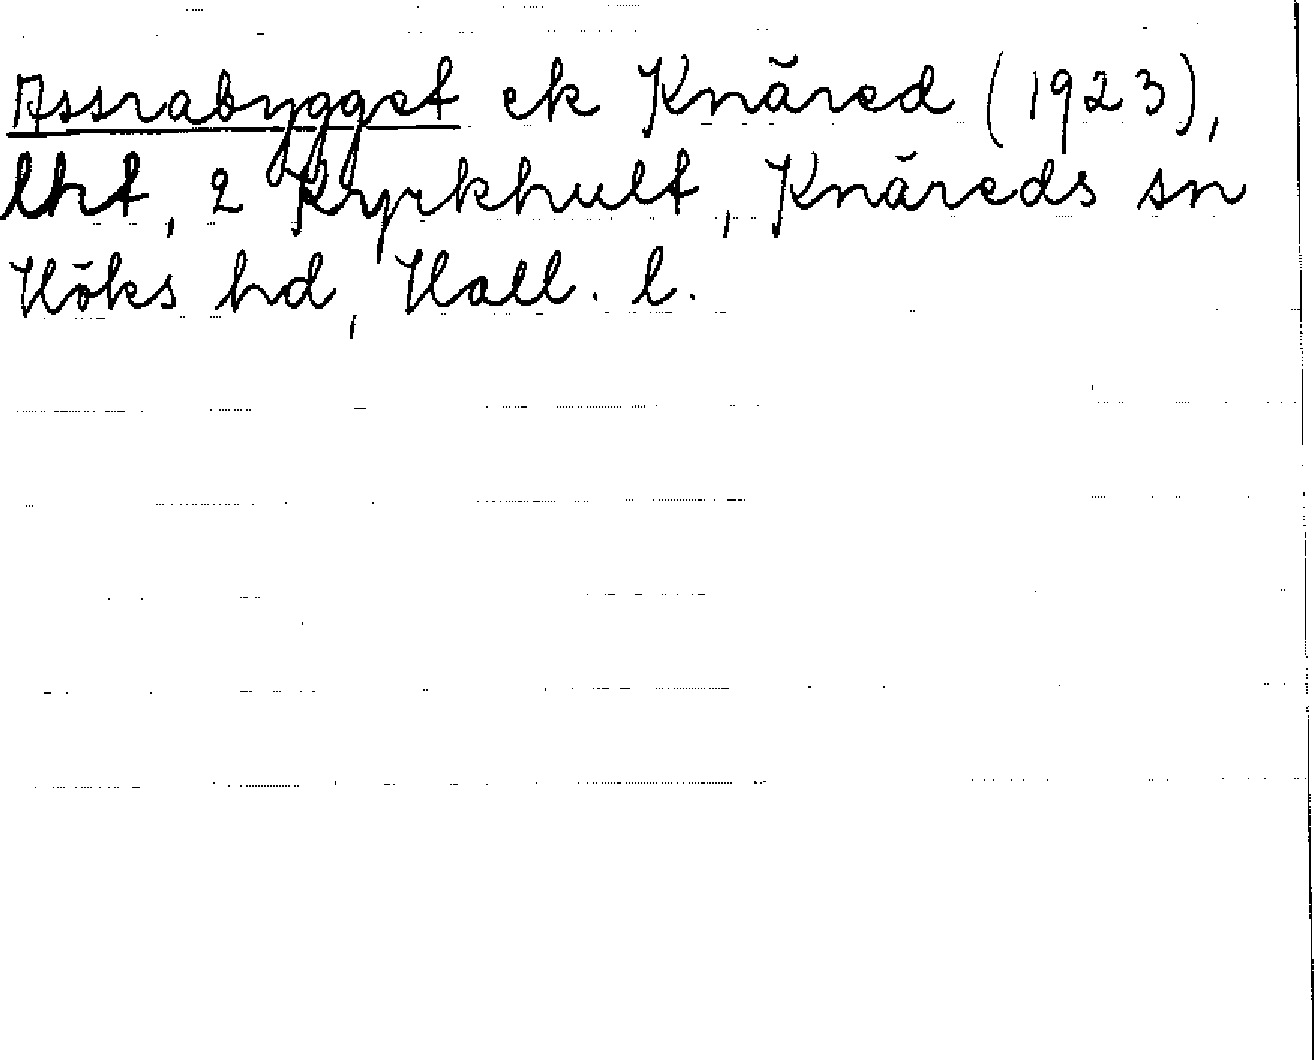 Assrabygget ek Knäred (1923),
lht, 2 Kyrkhult, Knäreds sn
Höks hd, Hall. l.